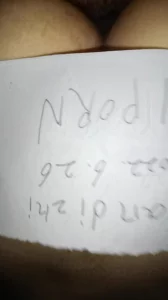 an di zhi
022.6.26
PORN